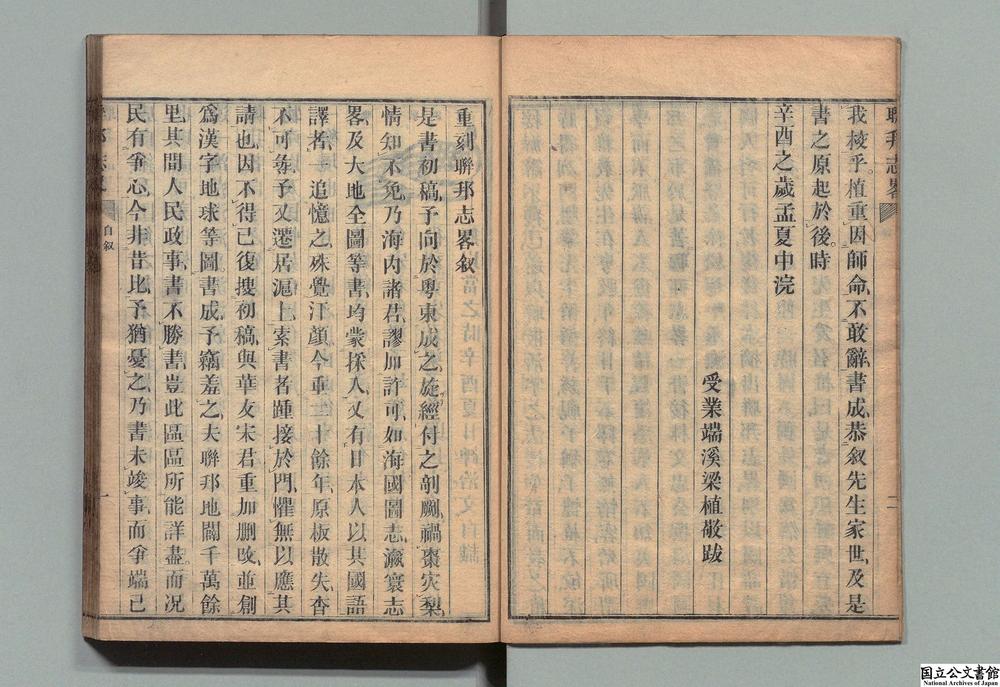 聯邦志畧
二
我梭乎。植重因師命、不敢辭、書成恭叙先生家世、及是
書之原起於後。時
辛酉之歲孟夏中浣
受業端溪梁植敬跋
重刻聯邦志畧叙
是書初稿、予向於粤東成之、旋經付之剞劂、禍棗灾梨、
情知不免、乃海內諸君、謬加許可、如海國圖志、瀛寰志
畧、及大地全圖等書、均蒙採入、又有日本人以其國語
譯者、一一追憶之、殊覺汗顔、今垂二十餘年、原板散失、杳
不可得、予又遷居滬上、索書者踵接於門、懼無以應其
請也、因不得已復搜初稿、與華友宋君重加删改、並創
爲漢字地球等圖、書成予竊羞之、夫聯邦地闢千萬餘
里、其間人民政事、書不勝書、豈此區區所能詳盡。而況
民有爭心、今非昔比、予猶憂之、乃書未竣事、而爭端已
聯邦志畧
自叙
一
国立公文書館
National Archives of Japan